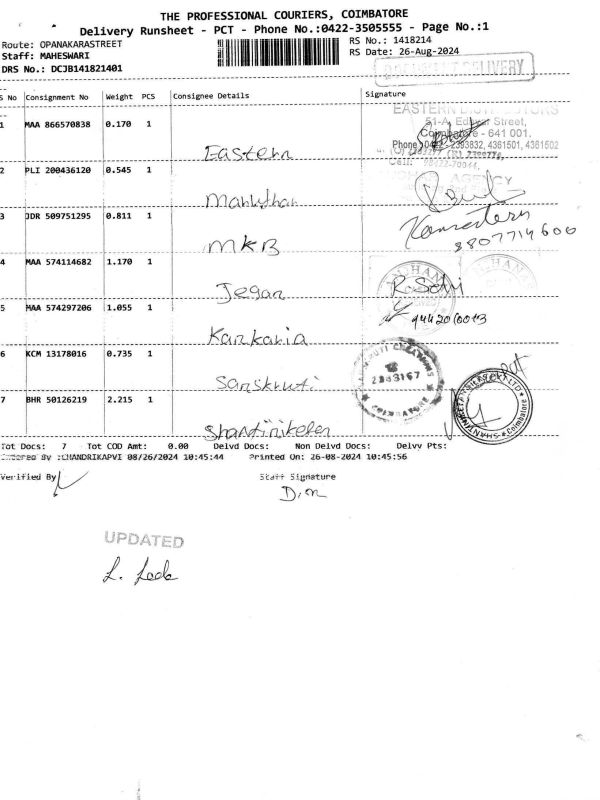 THE PROFESSIONAL COURIERS, COIMBATORE
Delivery Runsheet - PCT - Phone No.:0422-3505555 - Page No.:1
Route: OPANAKARASTREET
RS No.: 1418214
Staff: MAHESWARI
RS Date: 26-Aug-2024
DRS No.: DCJB141821401
DELIVERY
S No Consignment No Weight PCS Consignee Details Signature
EASTERN
51-A, Street,
1 MAA 866570838 0.170 1
Coimbatore - 641 001.
Phone 2393832, 4361501, 4361502
Eastern
Cell: 98422-70044
AGENCY
2 PLI 200436120 0.545 1
Manuthan
3 JDR 509751295 0.811 1
8807714600
MKB
4 MAA 574114682 1.170 1
Jegan
R. Selvi
5 MAA 574297206 1.055 1
Kankaria
6 KCM 13178016 0.735 1
CREATIONS
2383167
COIMBATORE
Sanskruti
7 BHR 50126219 2.215 1
Coimbatore
Shantiniketen
Tot Docs: 7 Tot COD Amt: 0.00 Delvd Docs: Non Delvd Docs: Delvy Pts:
Entered By :CHANDRIKAPVI 08/26/2024 10:45:44 Printed On: 26-08-2024 10:45:56
Verified By
Staff Signature
UPDATED